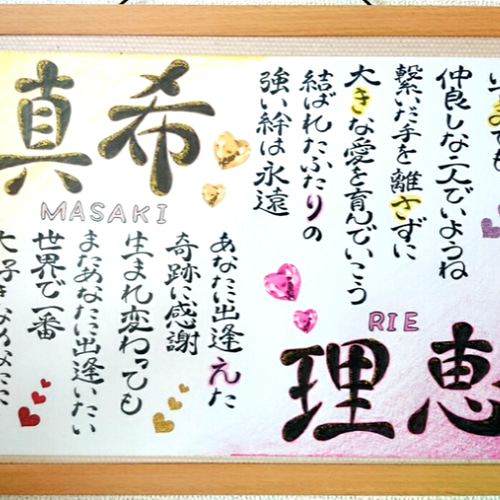 いつまでも
仲良しな二人でいようね
繋いだ手を離さずに
大きな愛を育んでいこう
結ばれたふたりの
強い絆は永遠
真希
MASAKI
理恵
RIE
あなたに出逢えた
奇跡に感謝
生まれ変わっても
またあなたに出逢いたい
世界で一番
大好きなあなたに